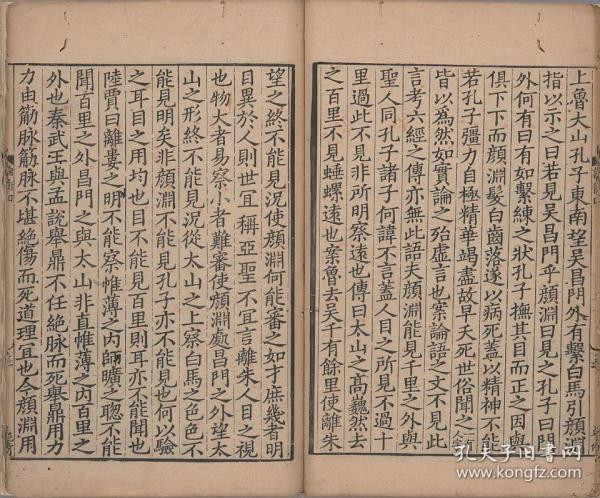 上魯大山孔子東南望吳昌門外有繫白馬引顏淵
指以示之曰若見吳昌門乎顏淵曰見之孔子曰門
外何有曰有如繫練之狀孔子撫其目而正之因與
俱下下而顏淵髮白齒落遂以病死蓋以精神不能
若孔子彊力自極精華竭盡故早夭死世俗聞之
皆以為然如實論之殆虛言也案論語之文不見此
言考六經之傳亦無此語夫顏淵能見千里之外與
聖人同孔子諸子何諱不言蓋人目之所見不過十
里過此不見非所明察遠也傳曰太山之高巍然去
之百里不見埵螺遠也案魯去吳千有餘里使離朱
望之終不能見況使顏淵何能審之如才庶幾者明
目異於人則世宜稱亞聖不宜言離朱人目之視
也物大者易察小者難審使顏淵處昌門之外望太
山之形終不能見況從太山之上察白馬之色色不
能見明矣非顏淵不能見孔子亦不能見也何以驗
之耳目之用均也目不能見百里則耳亦不能聞也
陸賈曰離婁之明不能察帷薄之內師曠之聰不能
聞百里之外昌門之與太山非直帷薄之內百里之
外也秦武王與孟說舉鼎不任絕脉而死舉鼎用力
力由筋脉筋脉不堪絕傷而死道理宜也今顏淵用
孔夫子旧书网
www.kongfz.com